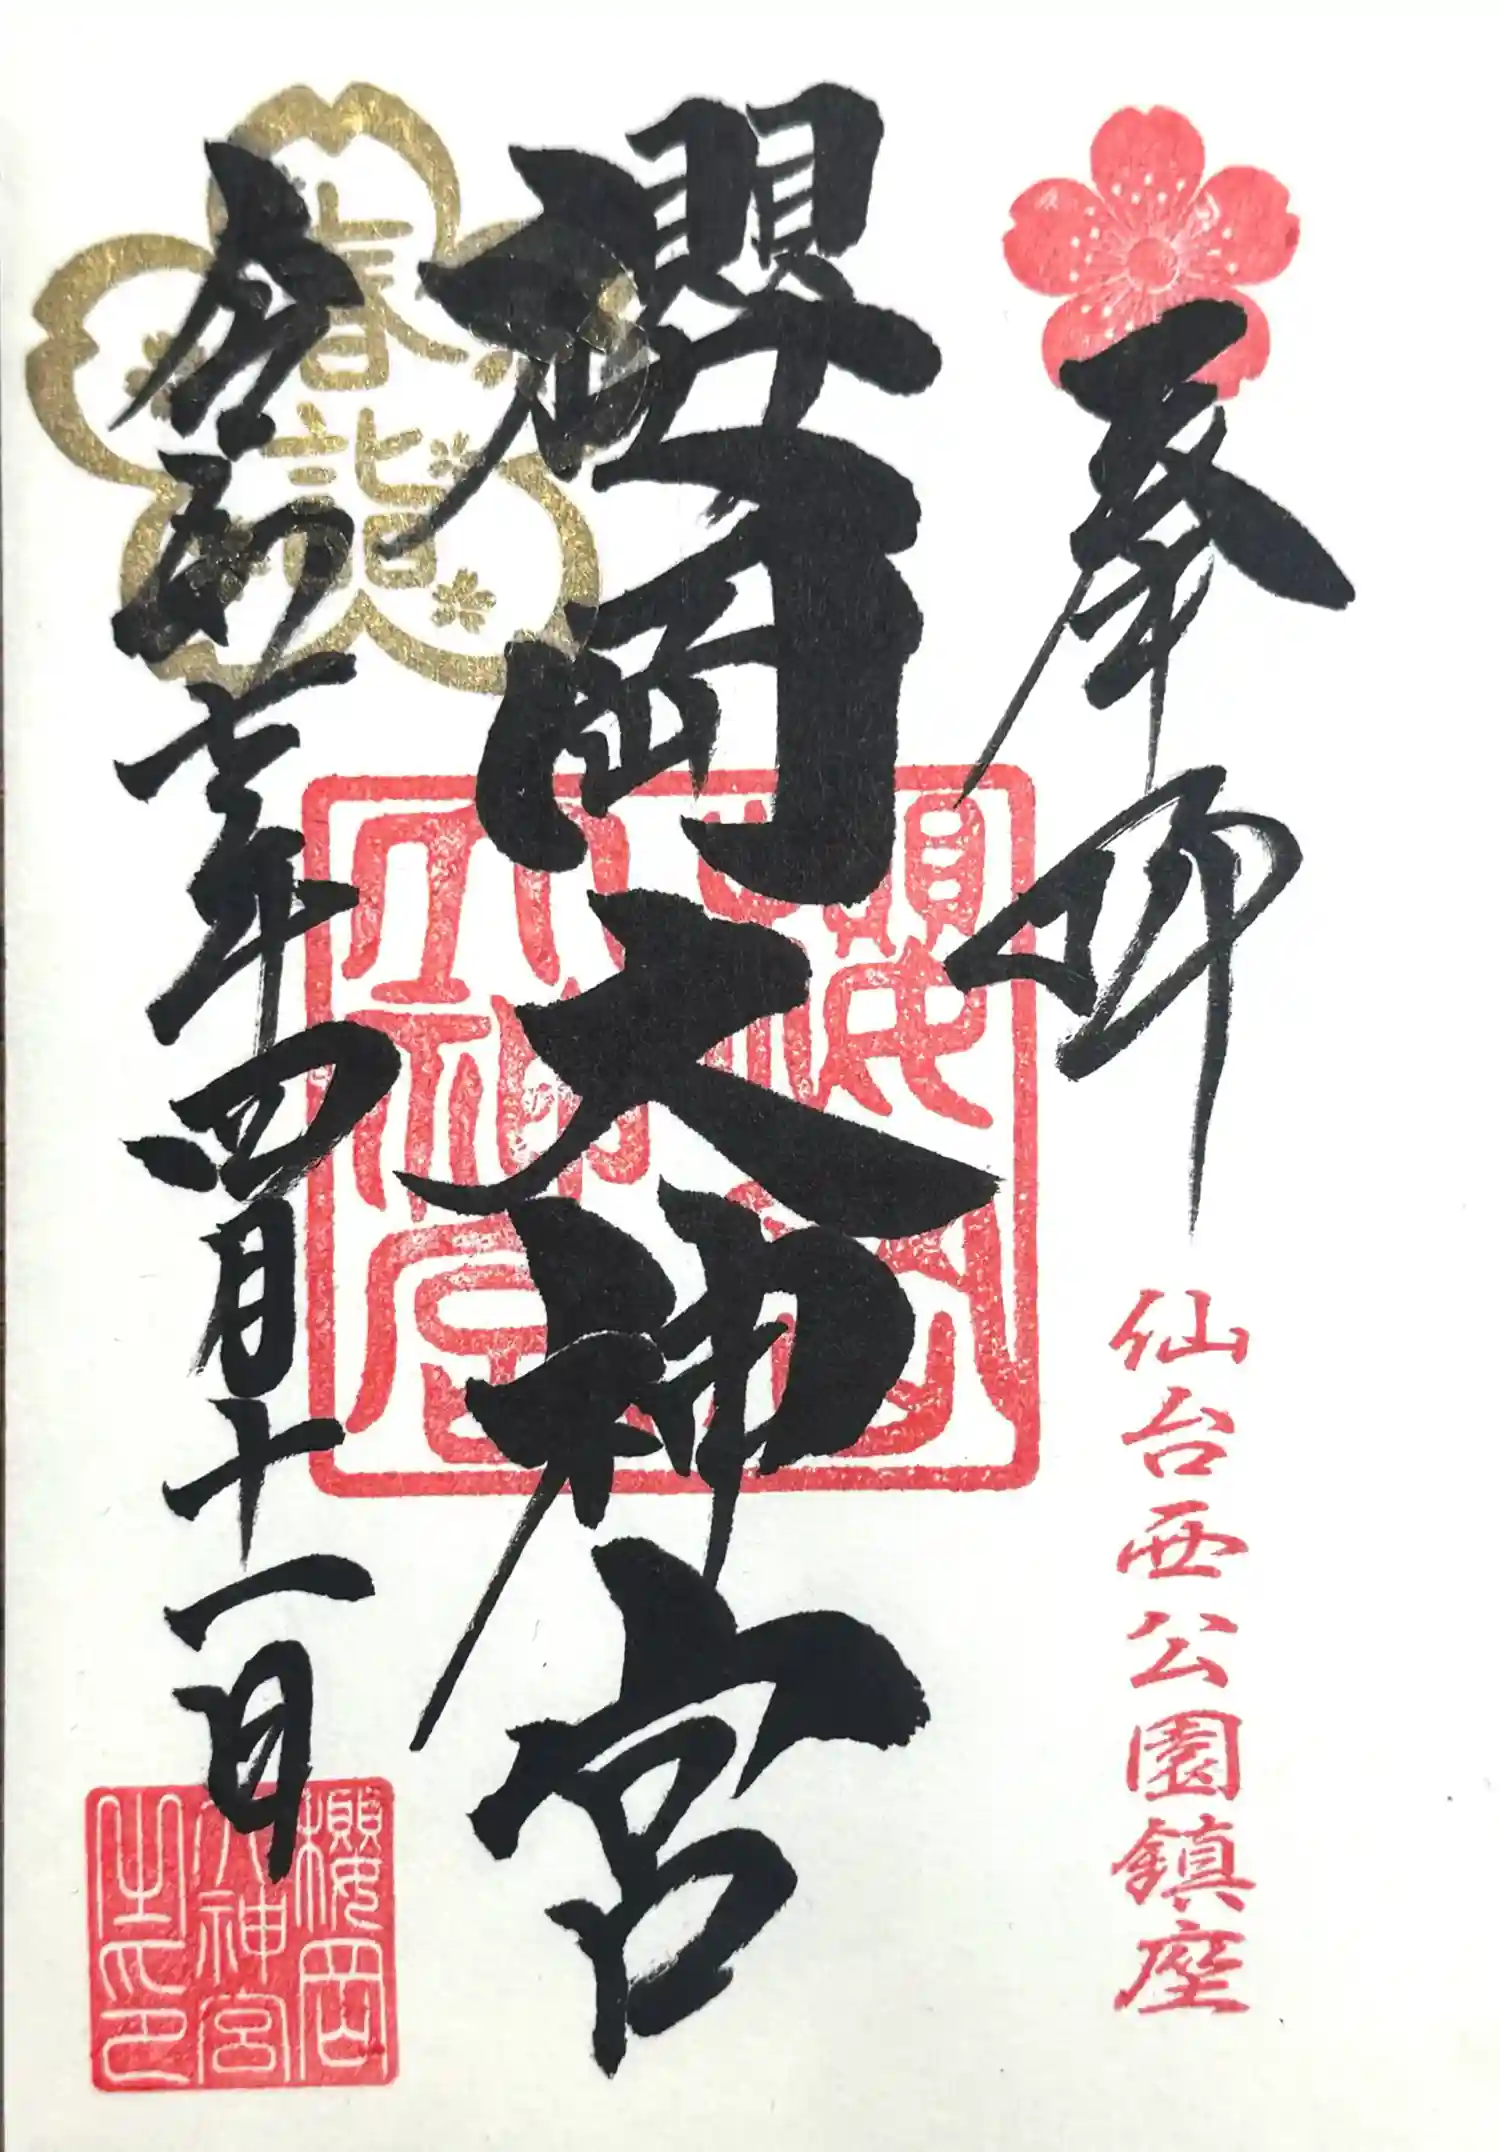 奉拝
仙台西公園鎮座
櫻岡大神宮
櫻岡
大神宮
春詣
令和年四月十一日
櫻岡
大神宮
之印